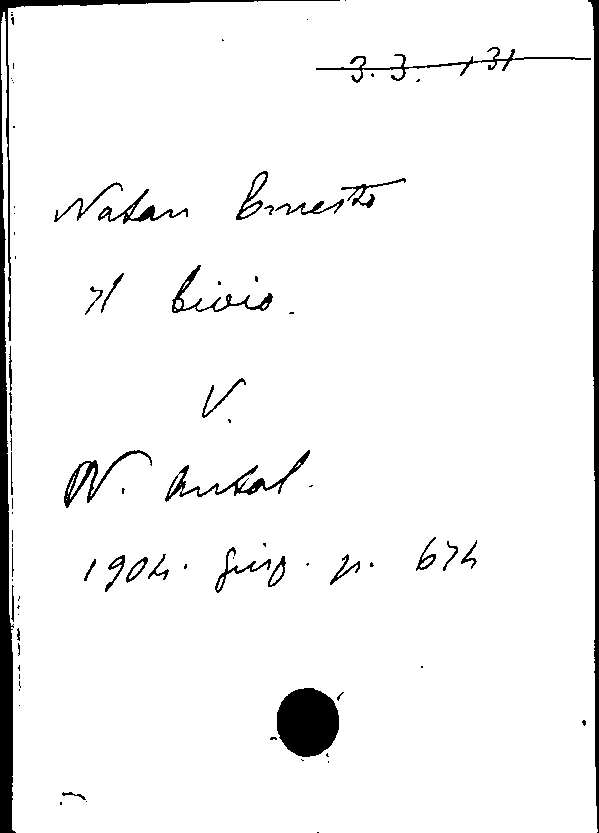 3.3.131
Natan Ernesto
Il bivio.
V.
N. Antol.
1904. giug. p. 674